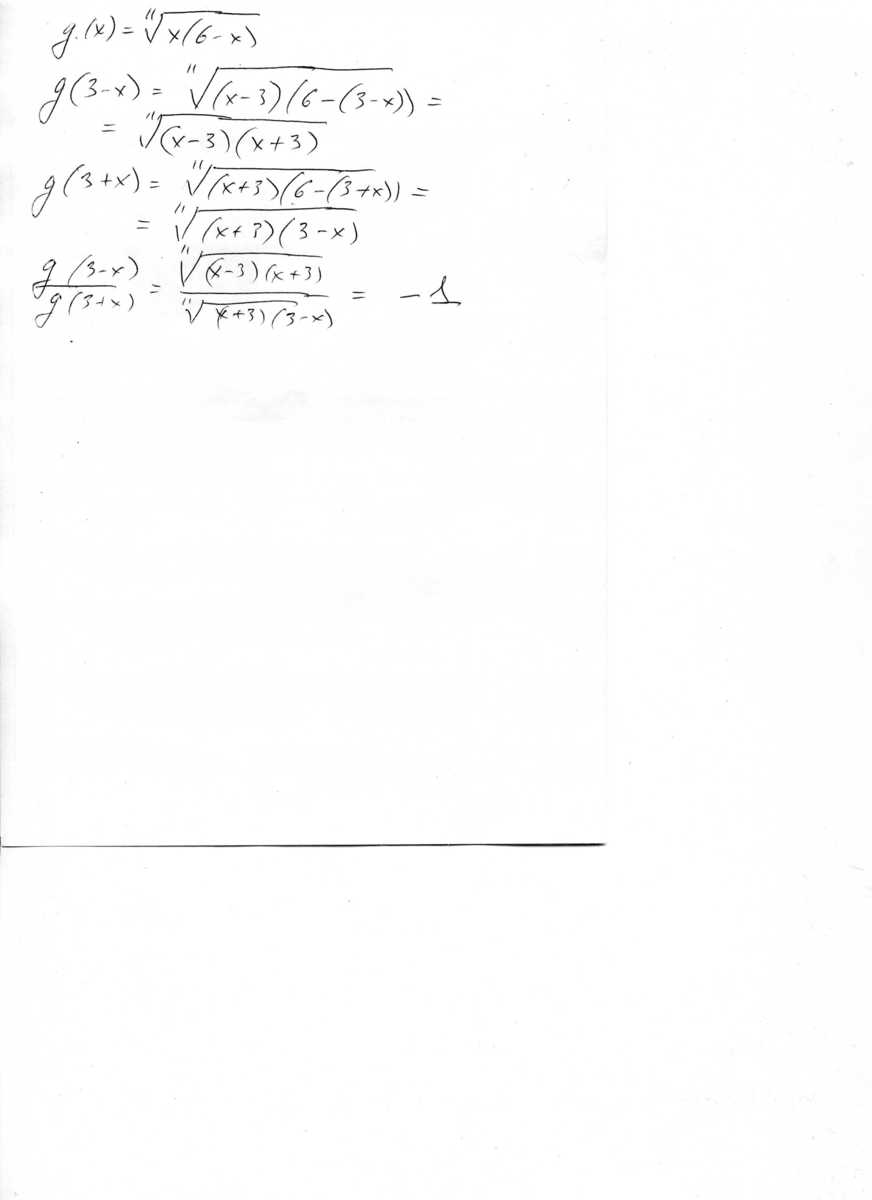 g(x) = ¹¹√x(6-x)
g(3-x) = ¹¹√(x-3)(6-(3-x)) =
= ¹¹√(x-3)(x+3)
g(3+x) = ¹¹√(x+3)(6-(3+x)) =
= ¹¹√(x+3)(3-x)
g(3-x)/g(3+x) = ¹¹√(x-3)(x+3)/¹¹√(x+3)(3-x) = -1